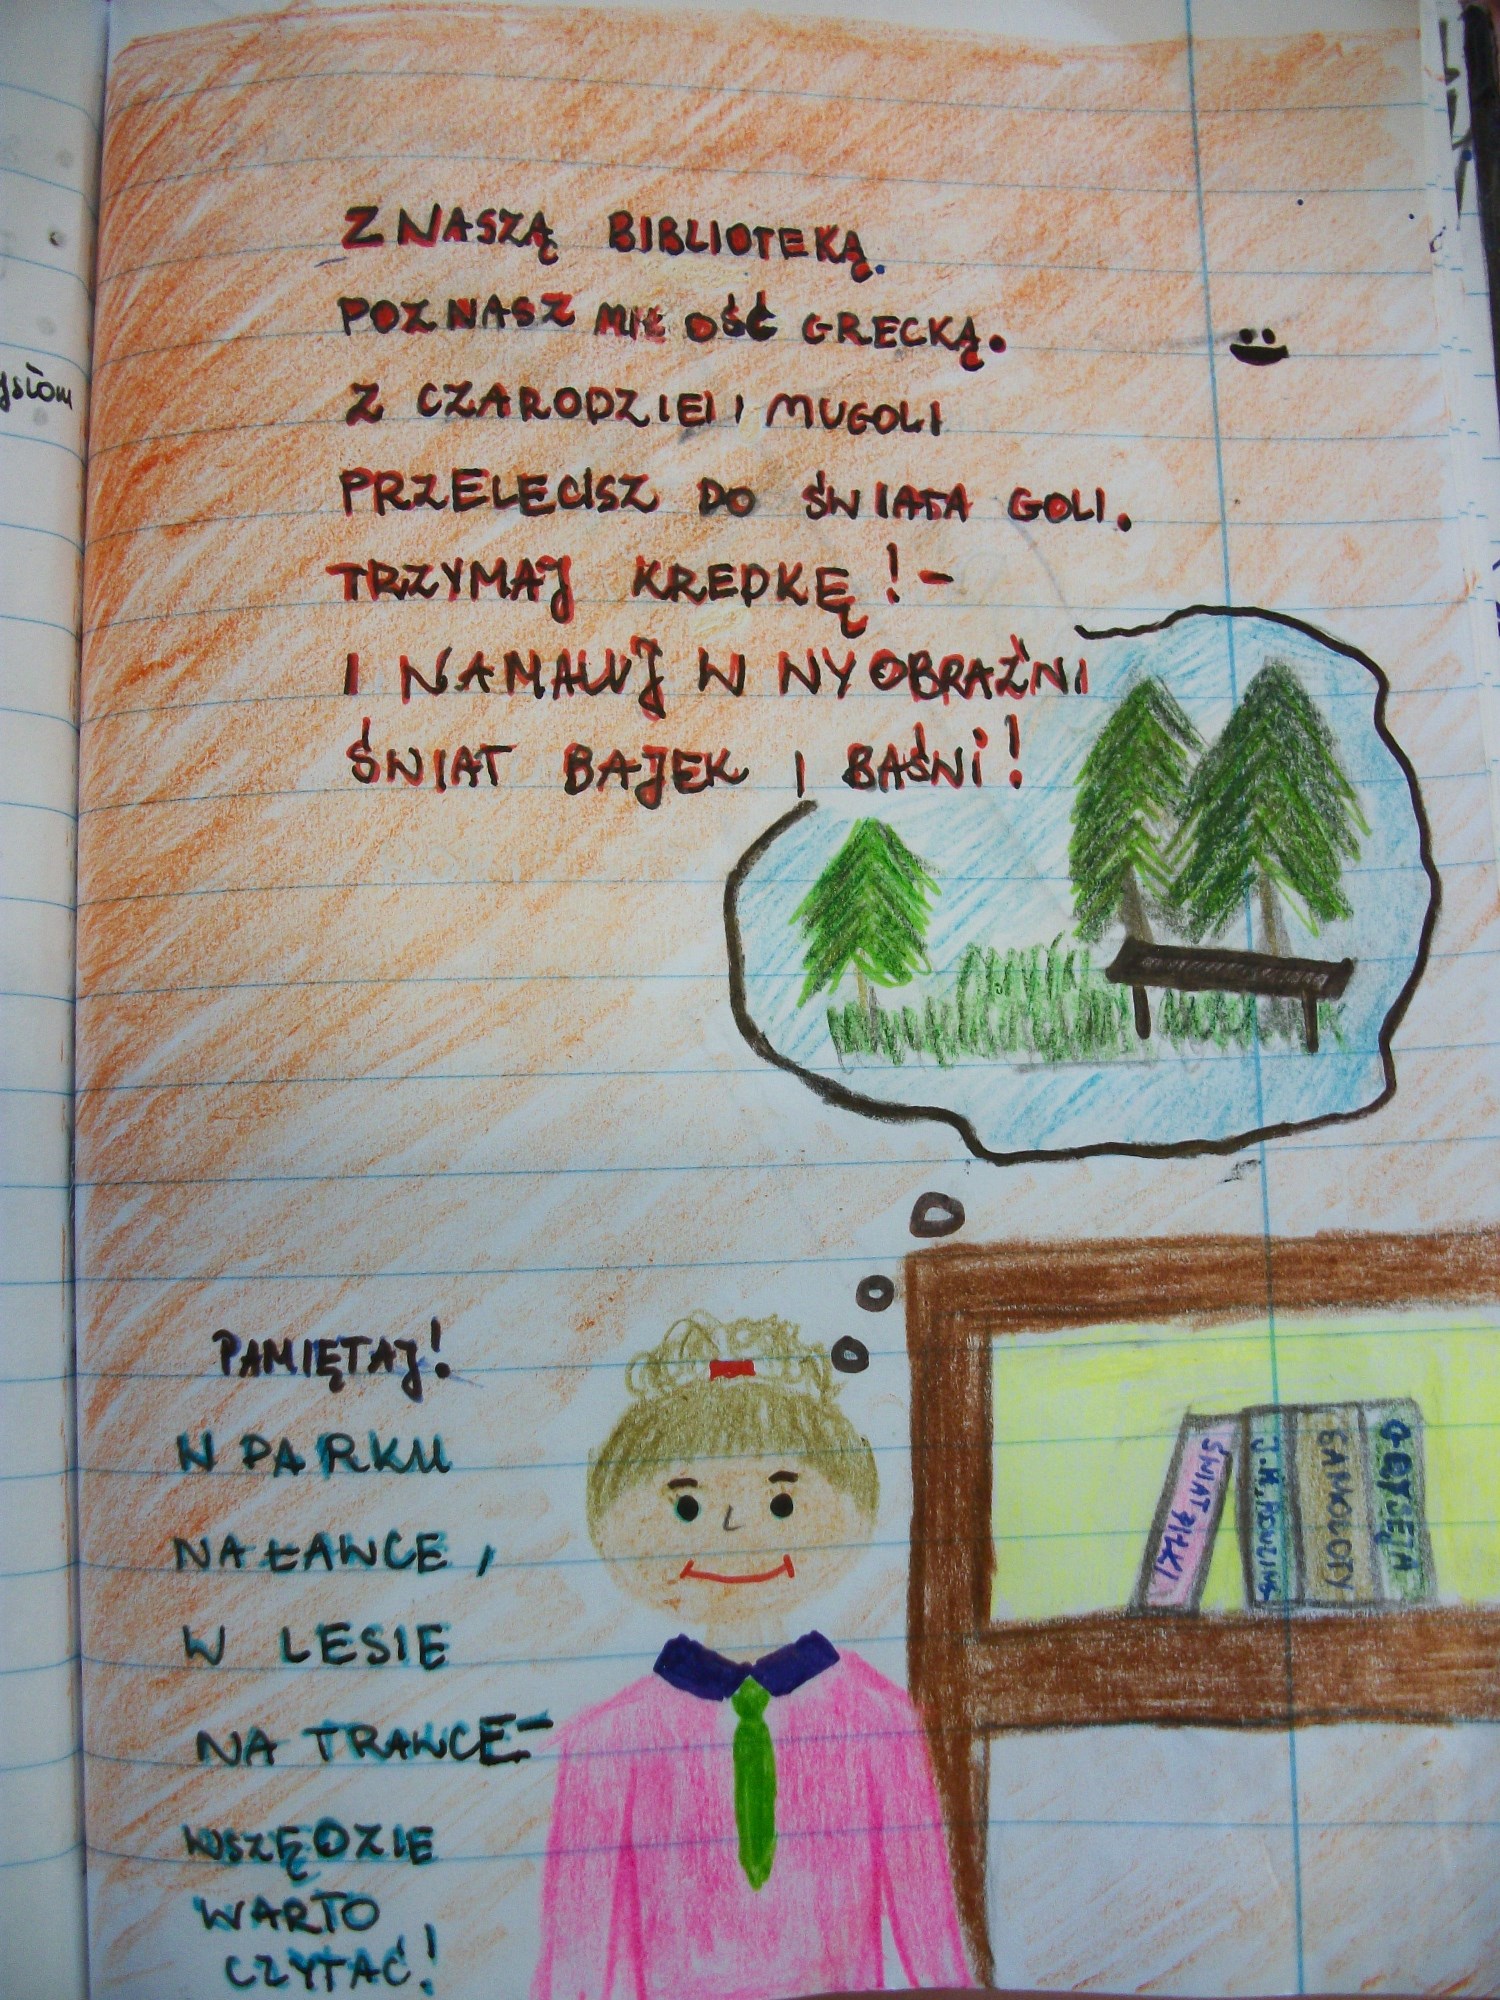 Z NASZĄ BIBLIOTEKĄ.
POZNASZ MIŁOŚĆ GRECKĄ.
Z CZARODZIEI I MUGOLI
PRZELECISZ DO ŚWIATA GOLI.
TRZYMAJ KREDKĘ! -
I NAMALUJ W WYOBRAŹNI
ŚWIAT BAJEK I BAŚNI!
PAMIĘTAJ!
W PARKU
NA ŁAWCE,
W LESIE
NA TRAWCE -
WSZĘDZIE
WARTO
CZYTAĆ!
ŚWIAT PIŁKI
J.K. ROWLING
SAMOLOTY
ODYSEJA